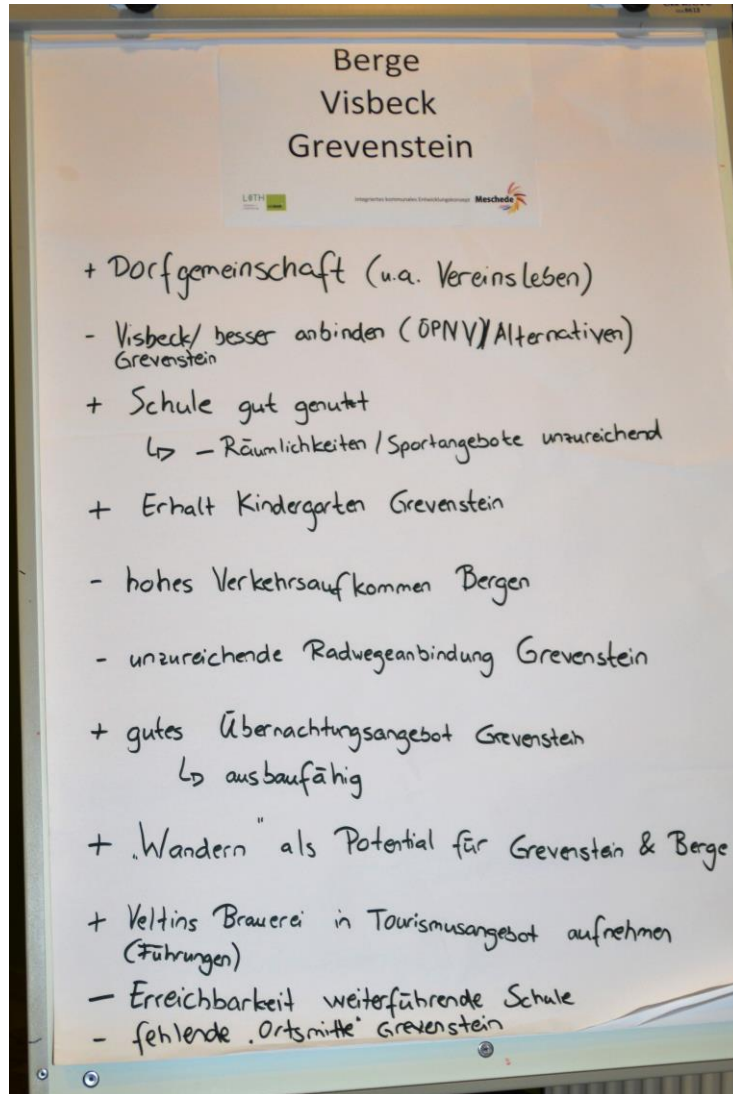 Berge
Visbeck
Grevenstein
LOTH
Integriertes kommunales Entwicklungskonzept Meschede
+ Dorfgemeinschaft (u.a. Vereinsleben)
- Visbeck/ besser anbinden (ÖPNV)/Alternativen)
Grevenstein
+ Schule gut genutzt
↳ - Räumlichkeiten / Sportangebote unzureichend
+ Erhalt Kindergarten Grevenstein
- hohes Verkehrsaufkommen Bergen
- unzureichende Radwegeanbindung Grevenstein
+ gutes Übernachtungsangebot Grevenstein
↳ ausbaufähig
+ „Wandern" als Potential für Grevenstein & Berge
+ Veltins Brauerei in Tourismusangebot aufnehmen
(Führungen)
- Erreichbarkeit weiterführende Schule
- fehlende „Ortsmitte" Grevenstein